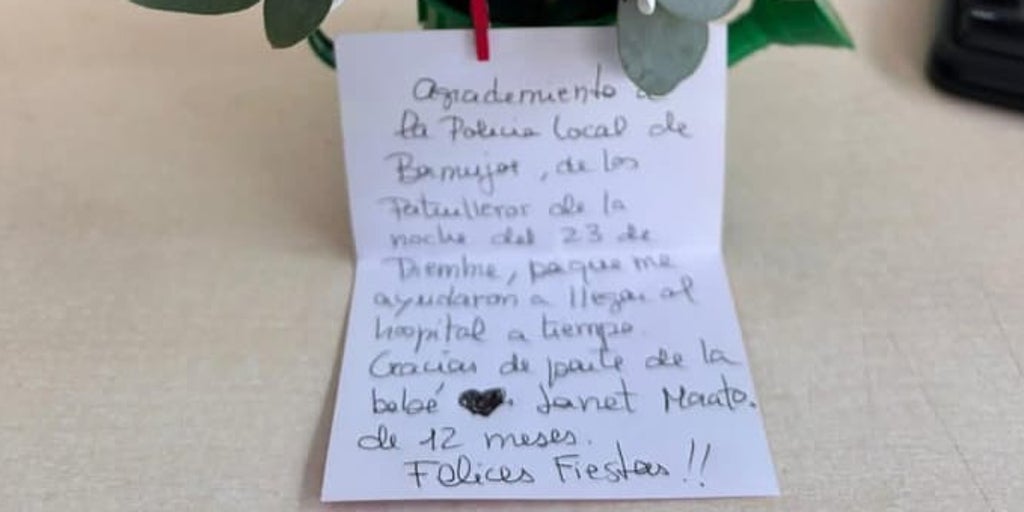 Agrademiento a
la Policia Local de
Bormujos, de los
Patrulleros de la
noche del 23 de
Diembre, paque me
ayudaron a llegar al
hospital a tiempo.
Gracias de parte de la
bebé Janet Maato.
de 12 meses.
Felices Fiestas!!